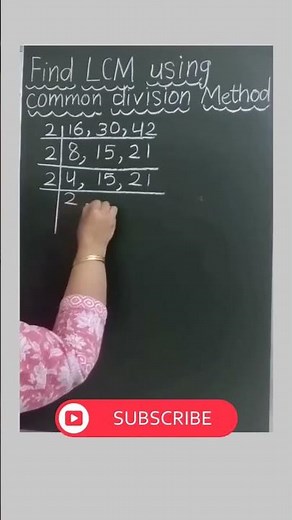 Find LCM using
common division Method
2 16, 30, 42
2 8, 15, 21
2 4, 15, 21
2
SUBSCRIBE